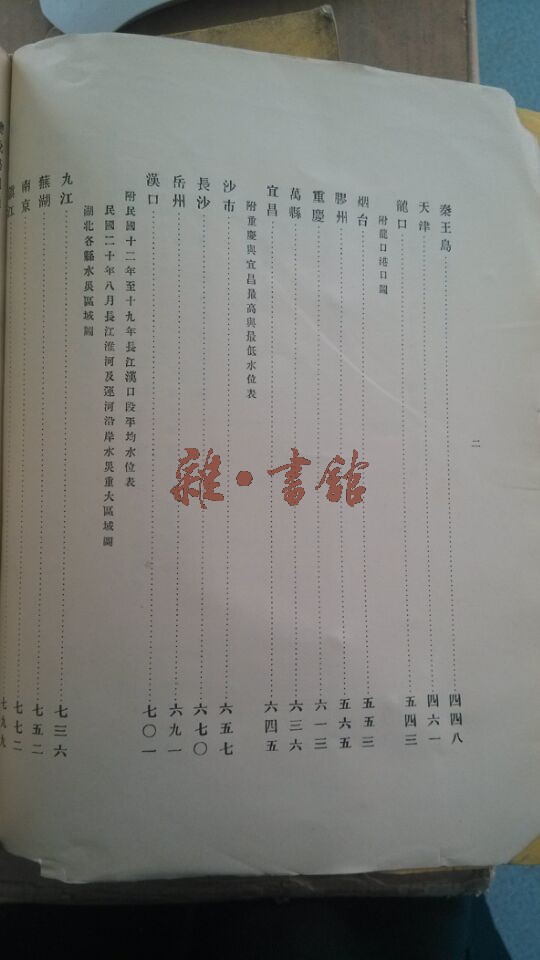 二
秦王島⋯⋯四四八
天津⋯⋯四六一
龍口⋯⋯五四三
附龍口港口圖
烟台⋯⋯五五三
膠州⋯⋯五六五
重慶⋯⋯六一三
萬縣⋯⋯六三六
宜昌⋯⋯六四五
附重慶與宜昌最高與最低水位表
沙市⋯⋯六五七
長沙⋯⋯六七〇
岳州⋯⋯六九一
漢口⋯⋯七〇一
附民國十二年至十九年長江漢口段平均水位表
民國二十年八月長江淮河及運河沿岸水災重大區域圖
湖北各縣水災區域圖
九江⋯⋯七三六
蕪湖⋯⋯七五二
南京⋯⋯七七二
江⋯⋯七九九
雜·書館